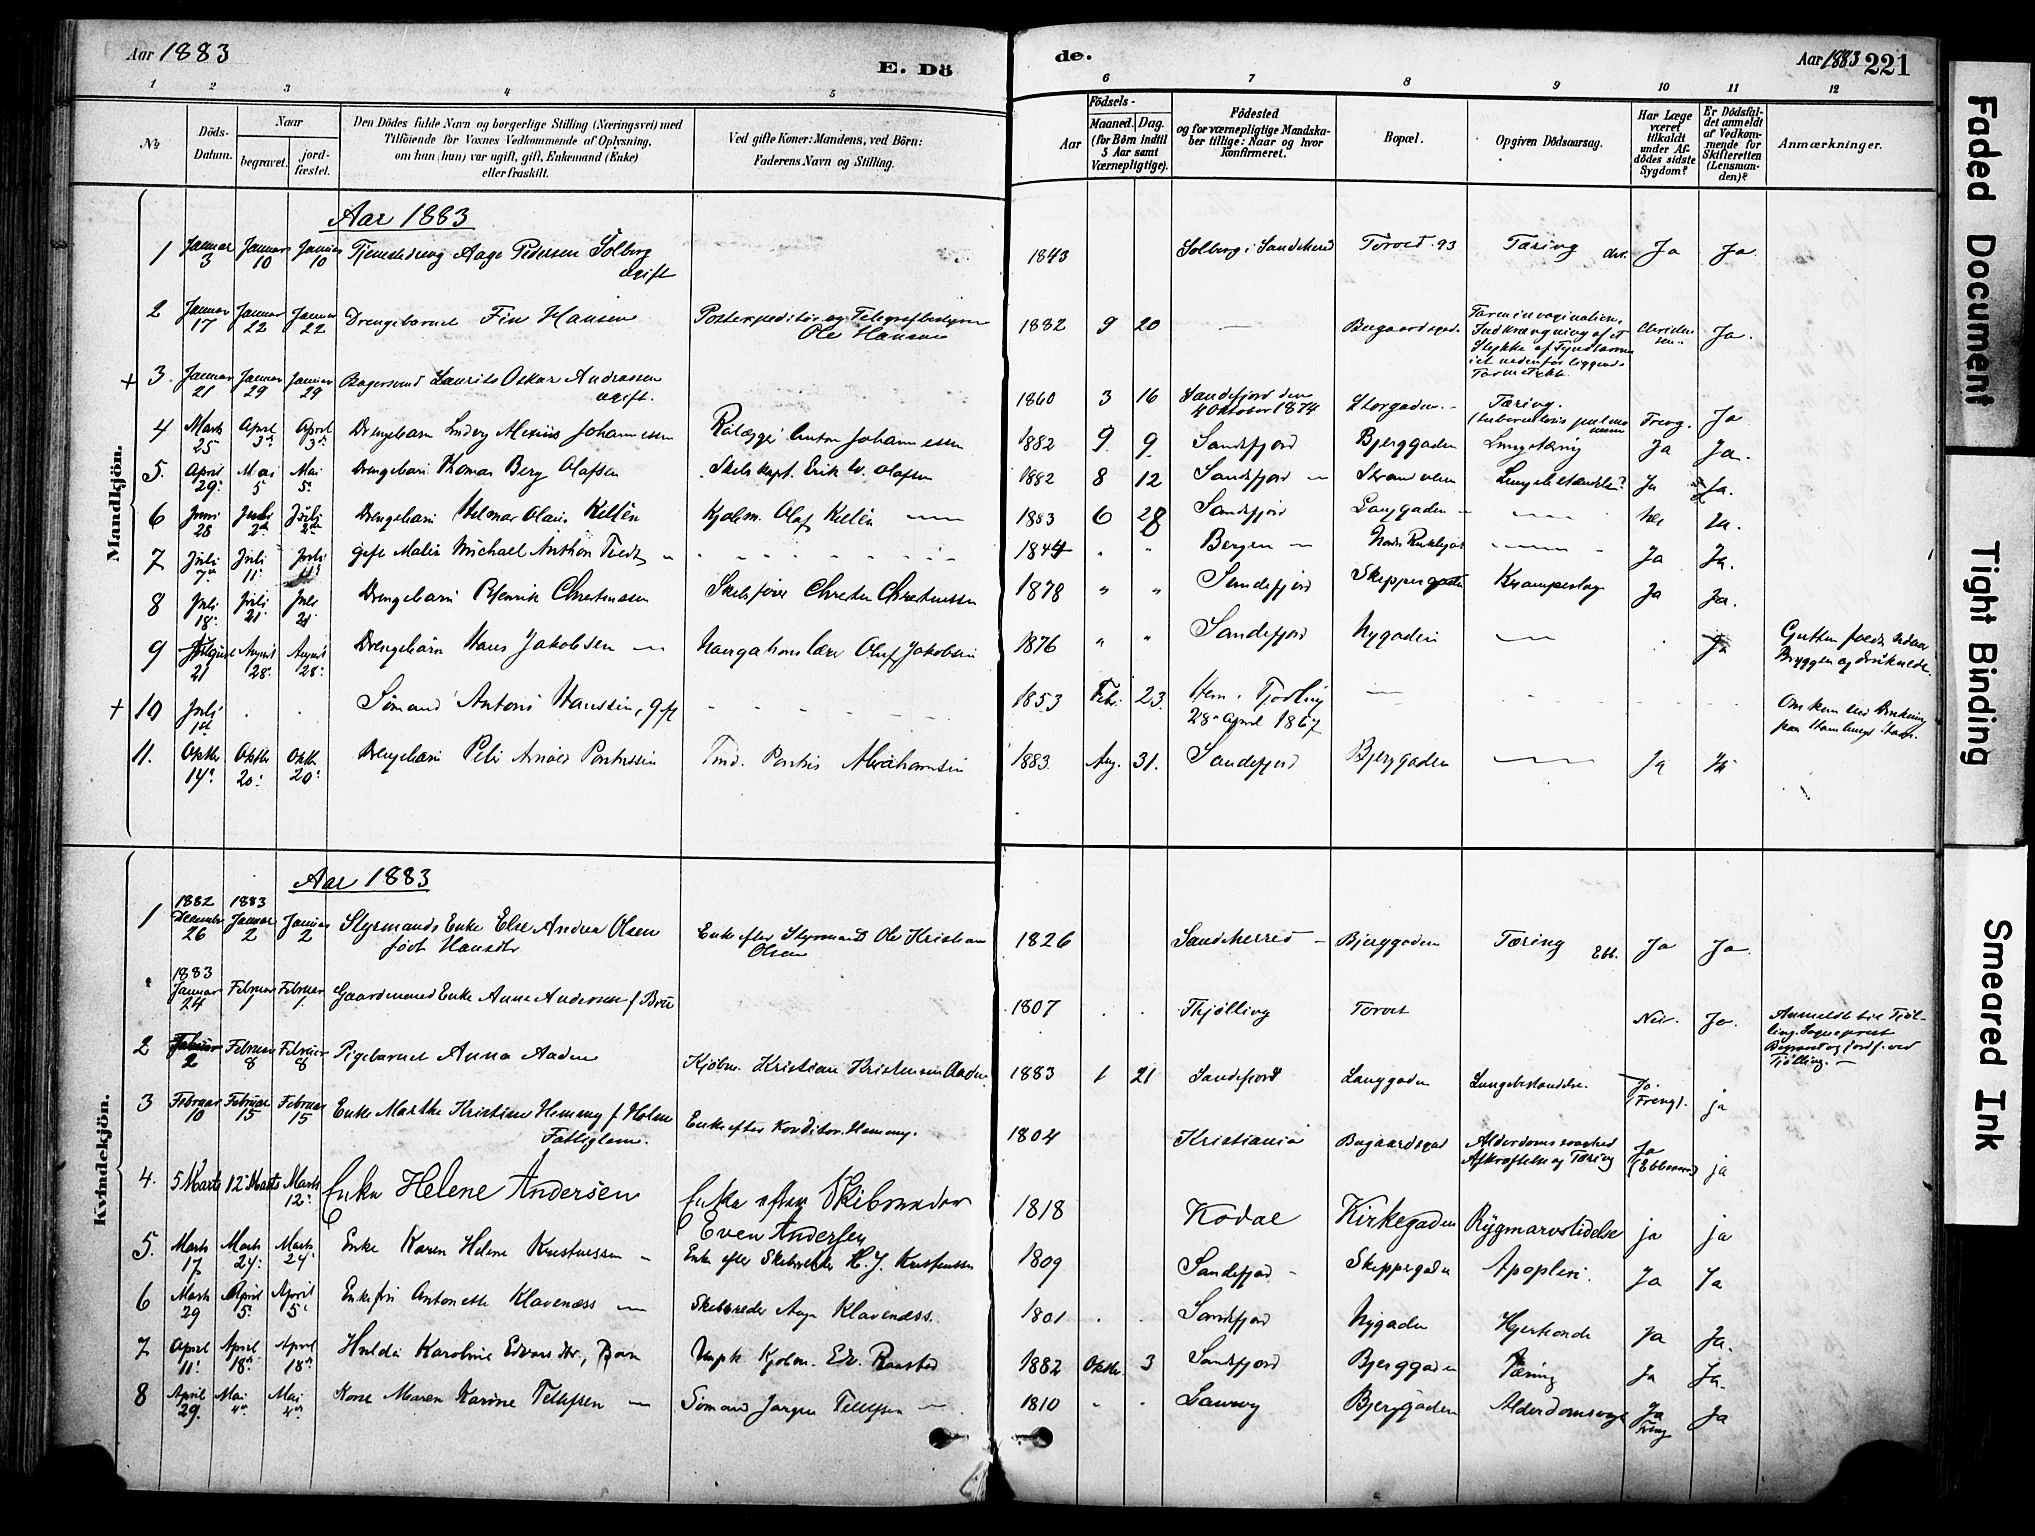 Aar 1883
E. Dö
1 2 3 4 5
№
Döds-Datum.
Naar
begravet.
jordfæstet.
Den Dödes fulde Navn og borgerlige Stilling (Næringsvei) med
Tilföiende for Voxnes Vedkommende af Oplysning,
om han (hun) var ugift, gift, Enkemand (Enke)
eller fraskilt.
Ved gifte Koner: Mandens, ved Börn:
Faderens Navn og Stilling.
Mandkjön.
Aar 1883
1 Januar 3 Januar 10 Januar 10 Tjenestedreng Aage Pedersen Solberg
ugift
2 Januar 17 Januar 22 Januar 22 Drengebarnet Finn Hansen Postexpeditør og Telegrafbestyrer
Ole Hansen
+ 3. Januar 21 Januar 29 Januar 29 Bagersvend Laurits Oskar Andreassen
ugift.
4 Marts 25 April 3 April 3 Drengebarn Ludvig Johannessen Anton Johannessen
5. April 29 Mai 5 Mai 5 Drengebarn Thomas Berg Olafsen Skibskapt. Erik Olafsen
6 Juni 28 Juli 2 Juli 2 Drengebarn Hilmar Olaus Kjøbm. Olaf
7 Juli 7 Juli 11 Juli 11 gift Maler Michael Anthon
8 Juli 18 Juli 21 Juli 21 Drengebarn Henrik Christensen Skibsfører Christen Christensen
9 August 21 August 28 August 28 Drengebarn Hans Jakobsen Navigationslærer Oluf Jakobsen
+ 10 Juli 1st Sømand Antoni Hanssen, gift
11. Oktbr 14 Oktbr 20 Oktbr 20 Drengebarn Peter Pontus Abrahamsen
Kvindekjön.
Aar 1883
1 1882 December 26 1883 Januar 2 Januar 2 Styrmands Enke Else Andrea Olsen
født Hansdtr Enke efter Styrmand Ole Kristian
Olsen
1883 Januar 24 Februar 1 Februar 1 Gaardmand Enke Anne Andersen f.
2 Februar 2 Februar 8 Februar 8 Pigebarnet Anna Aaden Kjøbm. Kristian Kristensen Aaden
3 Februar 10 Februar 15 Februar 15 Enke Marthe Kristine Hemmy f Holm
Fattiglem. Enke efter Konditor Hemmy.
4. 5 Marts 12 Marts Marts 12 Enke Helene Andersen Enke efter Skibsreder
Even Andersen
5. Marts 17 Marts 24 Marts 24 Enke Karen Helene Kristensen Enke efter Skibsreder H. J. Kristensen
6 Marts 29 April 5 April 5 Enkefru Antonette Klavenæss Skibsreder Aage Klavenæss.
7 April 11 April 18 April 18 Hulda Karoline Edvardsdtr, Barn Kjøbm. Edv. Raastad
8 April 29 Mai 4 Mai 4 Kone Maren Karine Tellefsen Sømand Jørgen Tellefsen
de.
Aar 1883 221
6 7 8 9 10 11 12
Födsels-
Aar
Maaned. Dag.
(for Börn indtil
5 Aar samt
Værnepligtige).
Födested
og for værnepligtige Mandskaber tillige: Naar og hvor
konfirmeret.
Bopæl.
Opgiven Dödsaarsag.
Har Læge
været
tilkaldt
under Afdödes sidste
Sygdom?
Er Dödsfaldet anmeldt
af Vedkommende for
Skifteretten
(Lensmanden)?
Anmærkninger.
1843 Solberg i Sandeherred Torvet 93 Tæring Ja Ja.
1882 9 20 — Bugaardsgad. Tarminvagination,
Indkrængning af et
Stykke af Tyndtarmen
i et nedenfor liggende
Tarmstykke. Ja.
1860 3 16 Sandefjord den
4 Oktober 1874 Storgaden Tæring.
(tuberculosis pulmonum Freng. Ja
1882 9 9 Sandefjord Bjerggaden Ja Ja.
1882 8 12 Sandefjord Strandveien Lungebetændelse? Ja Ja.
1883 6 28 Sandefjord Langgaden Ja.
1844 Bergen Ja Ja.
1878 " " Sandefjord Skippergaden Krampeslag Ja Ja.
1876 " " Sandefjord Nygaden Ja Gutten faldt udaf
Bryggen og druknede.
1853 Febr. 23. Hem i Tjødling
28 April 1867 Omkom ved Drukning
paa
1883. Aug. 31. Sandefjord Bjerggaden Ja Ja
1826 Sandeherred Bjerggaden Tæring Ebb. Ja Ja
1807 Thjølling Torvet Nei. Ja. Anmeldt til Tjølling Sognepræst
Begravet og jordf. ved
Tjølling.
1883 1 21 Sandefjord Langgaden Lungebetændelse. Ja.
(Freng). ja
1804 Kristiania Bugaardsgad Alderdomssvaghed
Afkræftelse og Tæring Ja
ja
1818 Kodal Kirkegaden Rygmarvslidelse ja ja
1809 Sandefjord Skippergaden Apoplexi. Ja Ja
1801 Sandefjord Nygaden Hjerteonde Ja Ja.
1882 Oktbr. 3 Sandefjord Bjerggaden Tæring Ja Ja.
1810 Laurvig Bjerggaden Alderdomssvag Ja
Freng Ja
Faded Document
Tight Binding
Smeared Ink